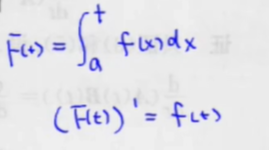 F(t) = ∫ₐᵗ f(x)dx
(F(t))' = f(t)